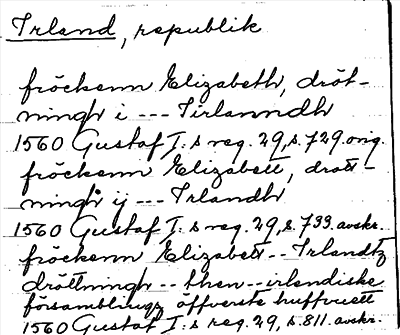 Irland, republik
fröckenn Elizabeth, dröt-
ningh i --- Jirlanndh
1560 Gustaf I:s reg. 29, s. 729 orig.
fröckenn Elizabett, drott-
ningh ij --- Irlandh
1560 Gustaf I:s reg. 29, s. 733. avskr.
fröckenn Elizabett -- Irlandtz
dröttningh -- then -- irlendiske
församblings öffverste huffvuett
1560 Gustaf I:s reg. 29, s. 811. avskr.